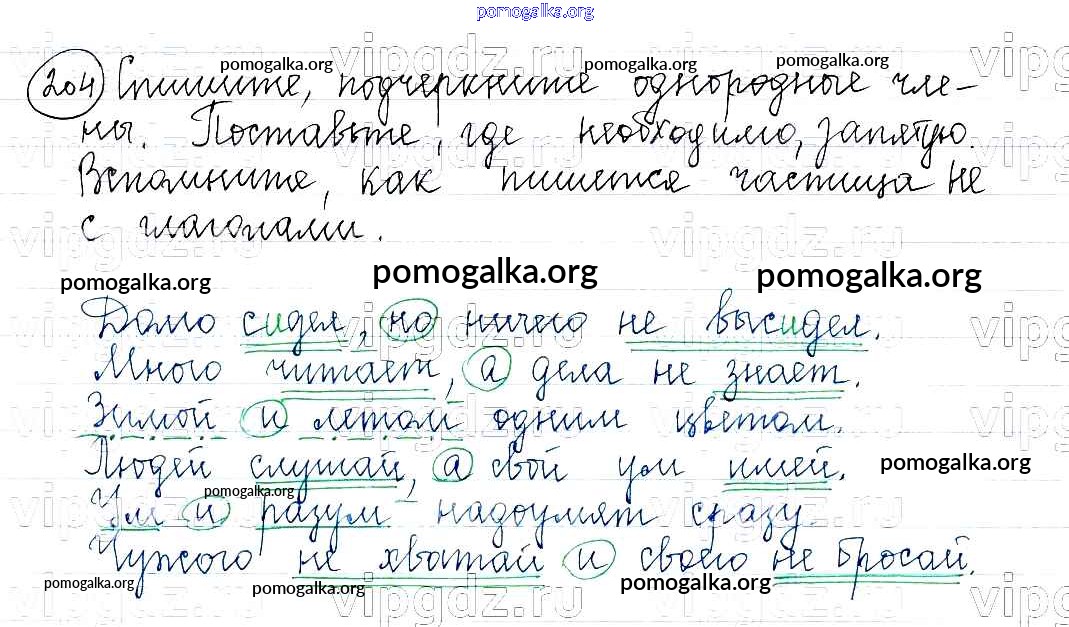 pomogalka.org
204 Спишите, подчеркните однородные чле-
ны. Поставьте, где необходимо, запятую.
Вспомните, как пишется частица не
с глаголами.
pomogalka.org pomogalka.org pomogalka.org
Долго сидел, но ничего не высидел.
Много читает, а дела не знает.
Зимой и летом одним цветом.
Людей слушай, а свой ум имей.
Ум и разум надоумят сразу.
Чужого не хватай и своего не бросай.
pomogalka.org pomogalka.org pomogalka.org
vipgdz.ru